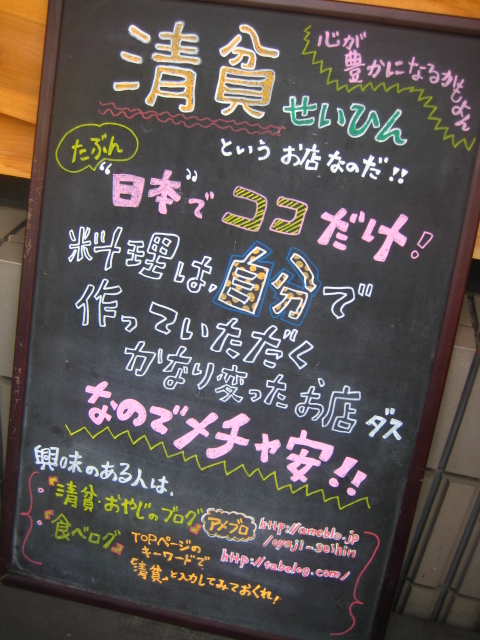 心が
豊かになるかもよん
清貧
せいひん
という お店なのだ!!
たぶん
"日本"で ココ だけ!
料理は、自分で
作っていただく
かなり変ったお店 ダス
なのでメチャ安!!
興味のある人は、
・清貧・おやじのブログ アメブロ http://ameblo.jp
/oyaji-seihin
・食べログ TOPページの
キーワードで
"清貧"と入力してみておくれ!
http://tabelog.com/